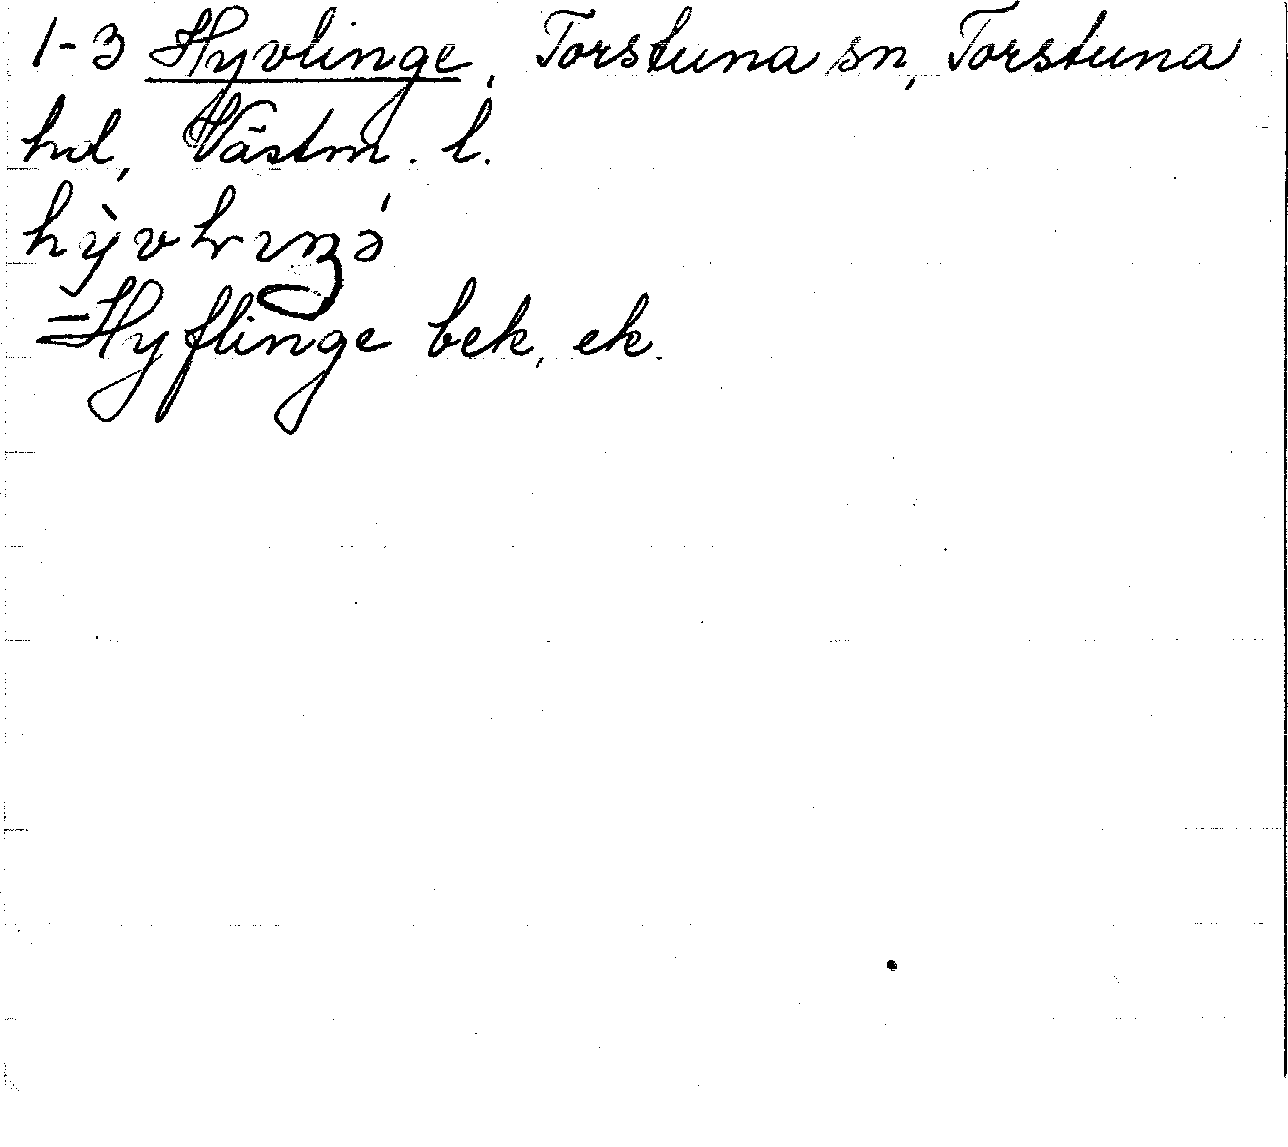 1-3 Hyvlinge, Torstuna sn, Torstuna
hd, Västm. l.
hy̆̀vlɩŋə́
=Hyflinge bek, ek.